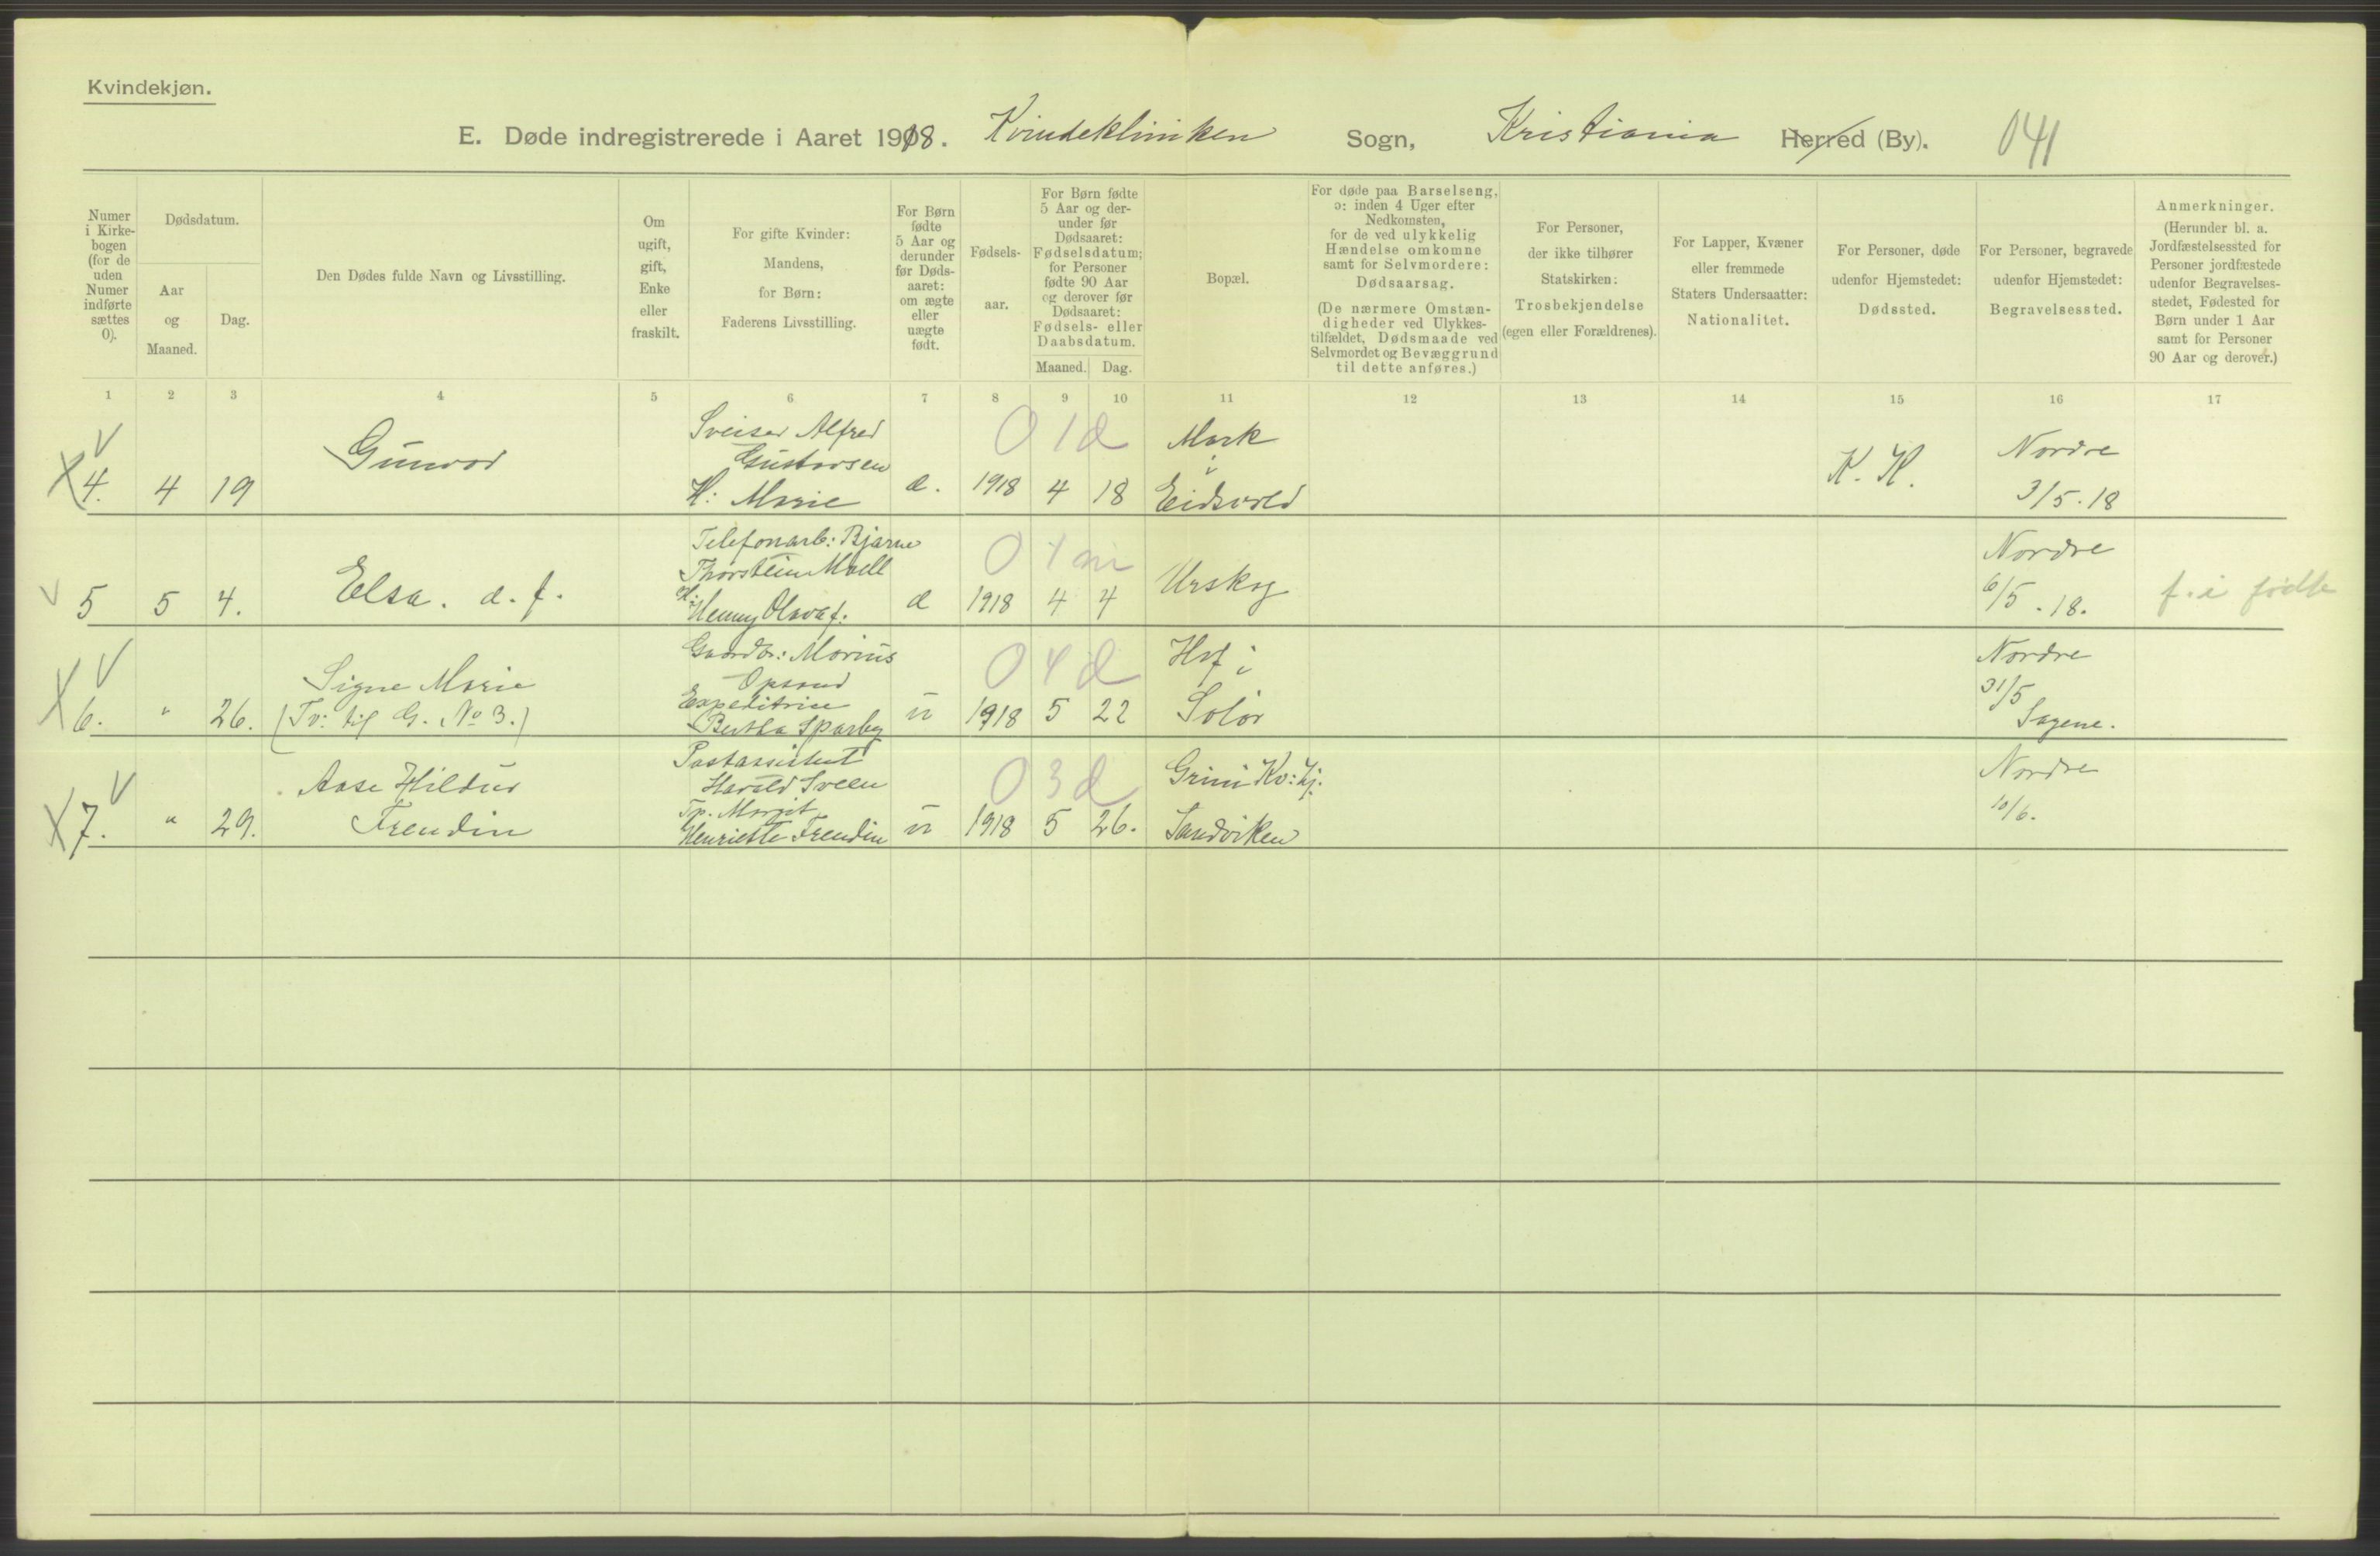 Kvindekjøn.
E. Døde indregistrerede i Aaret 1918. Kvindeklinikken Sogn, Kristiania Herred (By). 041
Numer
i Kirke-
bogen
(for de
uden
Numer
indførte
sættes
0).
Dødsdatum.
Aar
og
Maaned.
Dag.
Den Dødes fulde Navn og Livsstilling.
Om
ugift,
gift,
Enke
eller
fraskilt.
For gifte Kvinder:
Mandens,
for Børn:
Faderens Livsstilling.
For Børn
fødte
5 Aar og
derunder
før Døds-
aaret:
om ægte
eller
uægte
født.
Fødsels-
aar.
For Børn fødte
5 Aar og der-
under før
Dødsaaret:
Fødselsdatum;
for Personer
fødte 90 Aar
og derover før
Dødsaaret:
Fødsels- eller
Daabsdatum.
Maaned. Dag.
Bopæl.
For døde paa Barselseng,
ɔ: inden 4 Uger efter
Nedkomsten,
for de ved ulykkelig
Hændelse omkomne
samt for Selvmordere:
Dødsaarsag.
(De nærmere Omstæn-
digheder ved Ulykkes-
tilfældet, Dødsmaade ved
Selvmordet og Bevæggrund
til dette anføres.)
For Personer,
der ikke tilhører
Statskirken:
Trosbekjendelse
(egen eller Forældrenes).
For Lapper, Kvæner
eller fremmede
Staters Undersaatter:
Nationalitet.
For Personer, døde
udenfor Hjemstedet:
Dødssted.
For Personer, begravede
udenfor Hjemstedet:
Begravelsessted.
Anmerkninger.
(Herunder bl. a.
Jordfæstelsessted for
Personer jordfæstede
udenfor Begravelses-
stedet, Fødested for
Børn under 1 Aar
samt for Personer
90 Aar og derover.)
1 2 3 4 5 6 7 8 9 10 11 12 13 14 15 16 17
4. 4 19
Gunvor
Sveiser Alfred
Gustavsen
H: Marie
æ. 1918 4 18
0 1 d
Mork
i
Eidsvold
K. K.
Nordre
3/5. 18
5 5 4.
Elsa. d. f.
Telefonarb: Bjarne
Thorstein Moell
H:
Henny Olava f.
æ 1918 4 4
0 1 m
Urskog
Nordre
6/5. 18.
f. i fødsle
6. " 26.
Signe Marie
(Tv: til G. No 3.)
Gaardbr: Marius
Opsand
Expeditrise
Bertha Sparby
u 1918 5 22
0 4 d
Hof i
Solør
Nordre
31/5
Sagene.
7. " 29.
Aase Hildur
Frendin
Postassistent
Harald Sveen
Tp. Margit
Henriette Frendin
u 1918 5 26.
0 3 d
Grini Kv: hj.
Sandviken
Nordre
10/6.